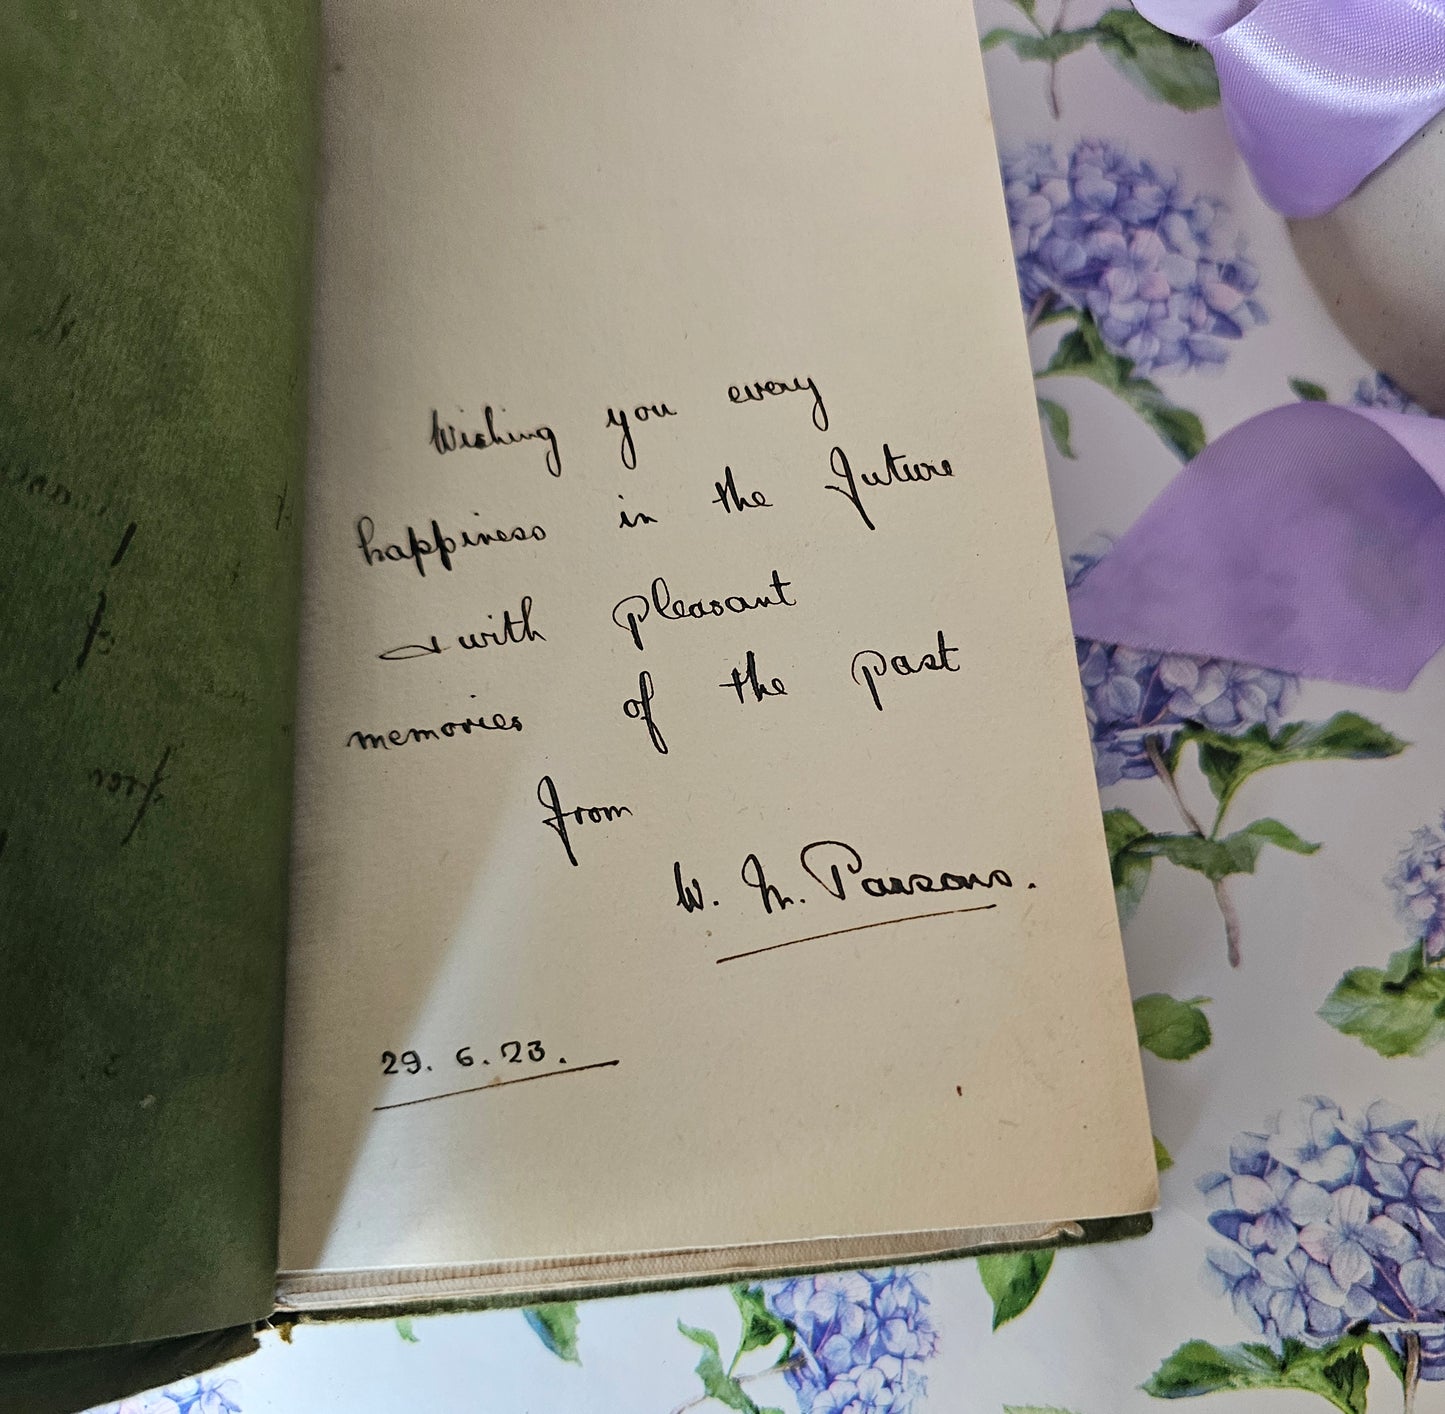 Wishing you every
happiness in the future
& with pleasant
memories of the past
from
W. M. Parsons.
29. 6. 23.